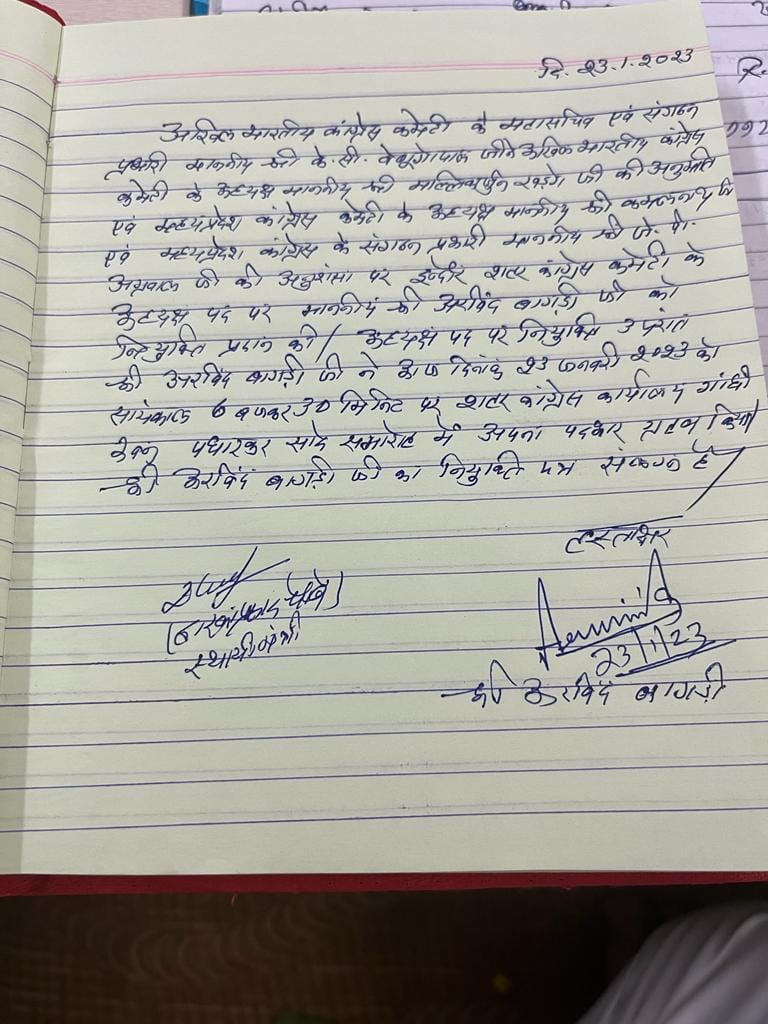 दि. 23.1.2023
अखिल भारतीय कांग्रेस कमेटी के महासचिव एवं संगठन
प्रभारी माननीय श्री के.सी. वेणुगोपाल जी ने अखिल भारतीय कांग्रेस
कमेटी के अध्यक्ष माननीय श्री मल्लिकार्जुन खड़गे जी की अनुमति
एवं मध्यप्रदेश कांग्रेस कमेटी के अध्यक्ष माननीय श्री कमलनाथ जी
एवं मध्यप्रदेश कांग्रेस के संगठन प्रभारी माननीय श्री जे. पी.
अग्रवाल जी की अनुशंसा पर इन्दौर शहर कांग्रेस कमेटी के
अध्यक्ष पद पर माननीय श्री अरविंद बागड़ी जी को
नियुक्ति प्रदान की/ अध्यक्ष पद पर नियुक्ति उपरांत
श्री अरविंद बागड़ी जी ने आज दिनांक 23 जनवरी 2023 को
सायंकाल 6 बजकर 30 मिनिट पर शहर कांग्रेस कार्यालय गांधी
भवन पधारकर सादे समारोह में अपना पदभार ग्रहण किया/
श्री अरविंद बागड़ी जी का नियुक्ति पत्र संलग्न है
हस्ताक्षर
23/1/23
स्थायी मंत्री
श्री अरविंद बागड़ी